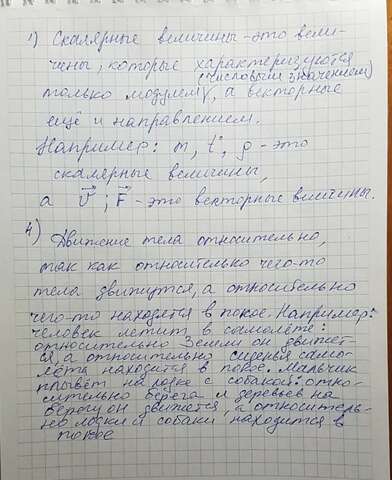 1) Скалярные величины - это вели-
чины, которые характеризуются
(числовым значением)
только модулем, а векторные
ещё и направлением.
Например: m, t°, ρ - это
скалярные величины,
а V⃗; F⃗ - это векторные величины.
4) Движение тела относительно,
так как относительно чего-то
тела движутся, а относительно
чего-то находятся в покое. Например:
человек летит в самолёте:
относительно Земли он движет-
ся, а относительно сиденья само-
лёта находится в покое. Мальчик
плывёт на лодке с собакой: отно-
сительно берега и деревьев на
берегу он движется, а относитель-
но лодки и собаки находится в
покое